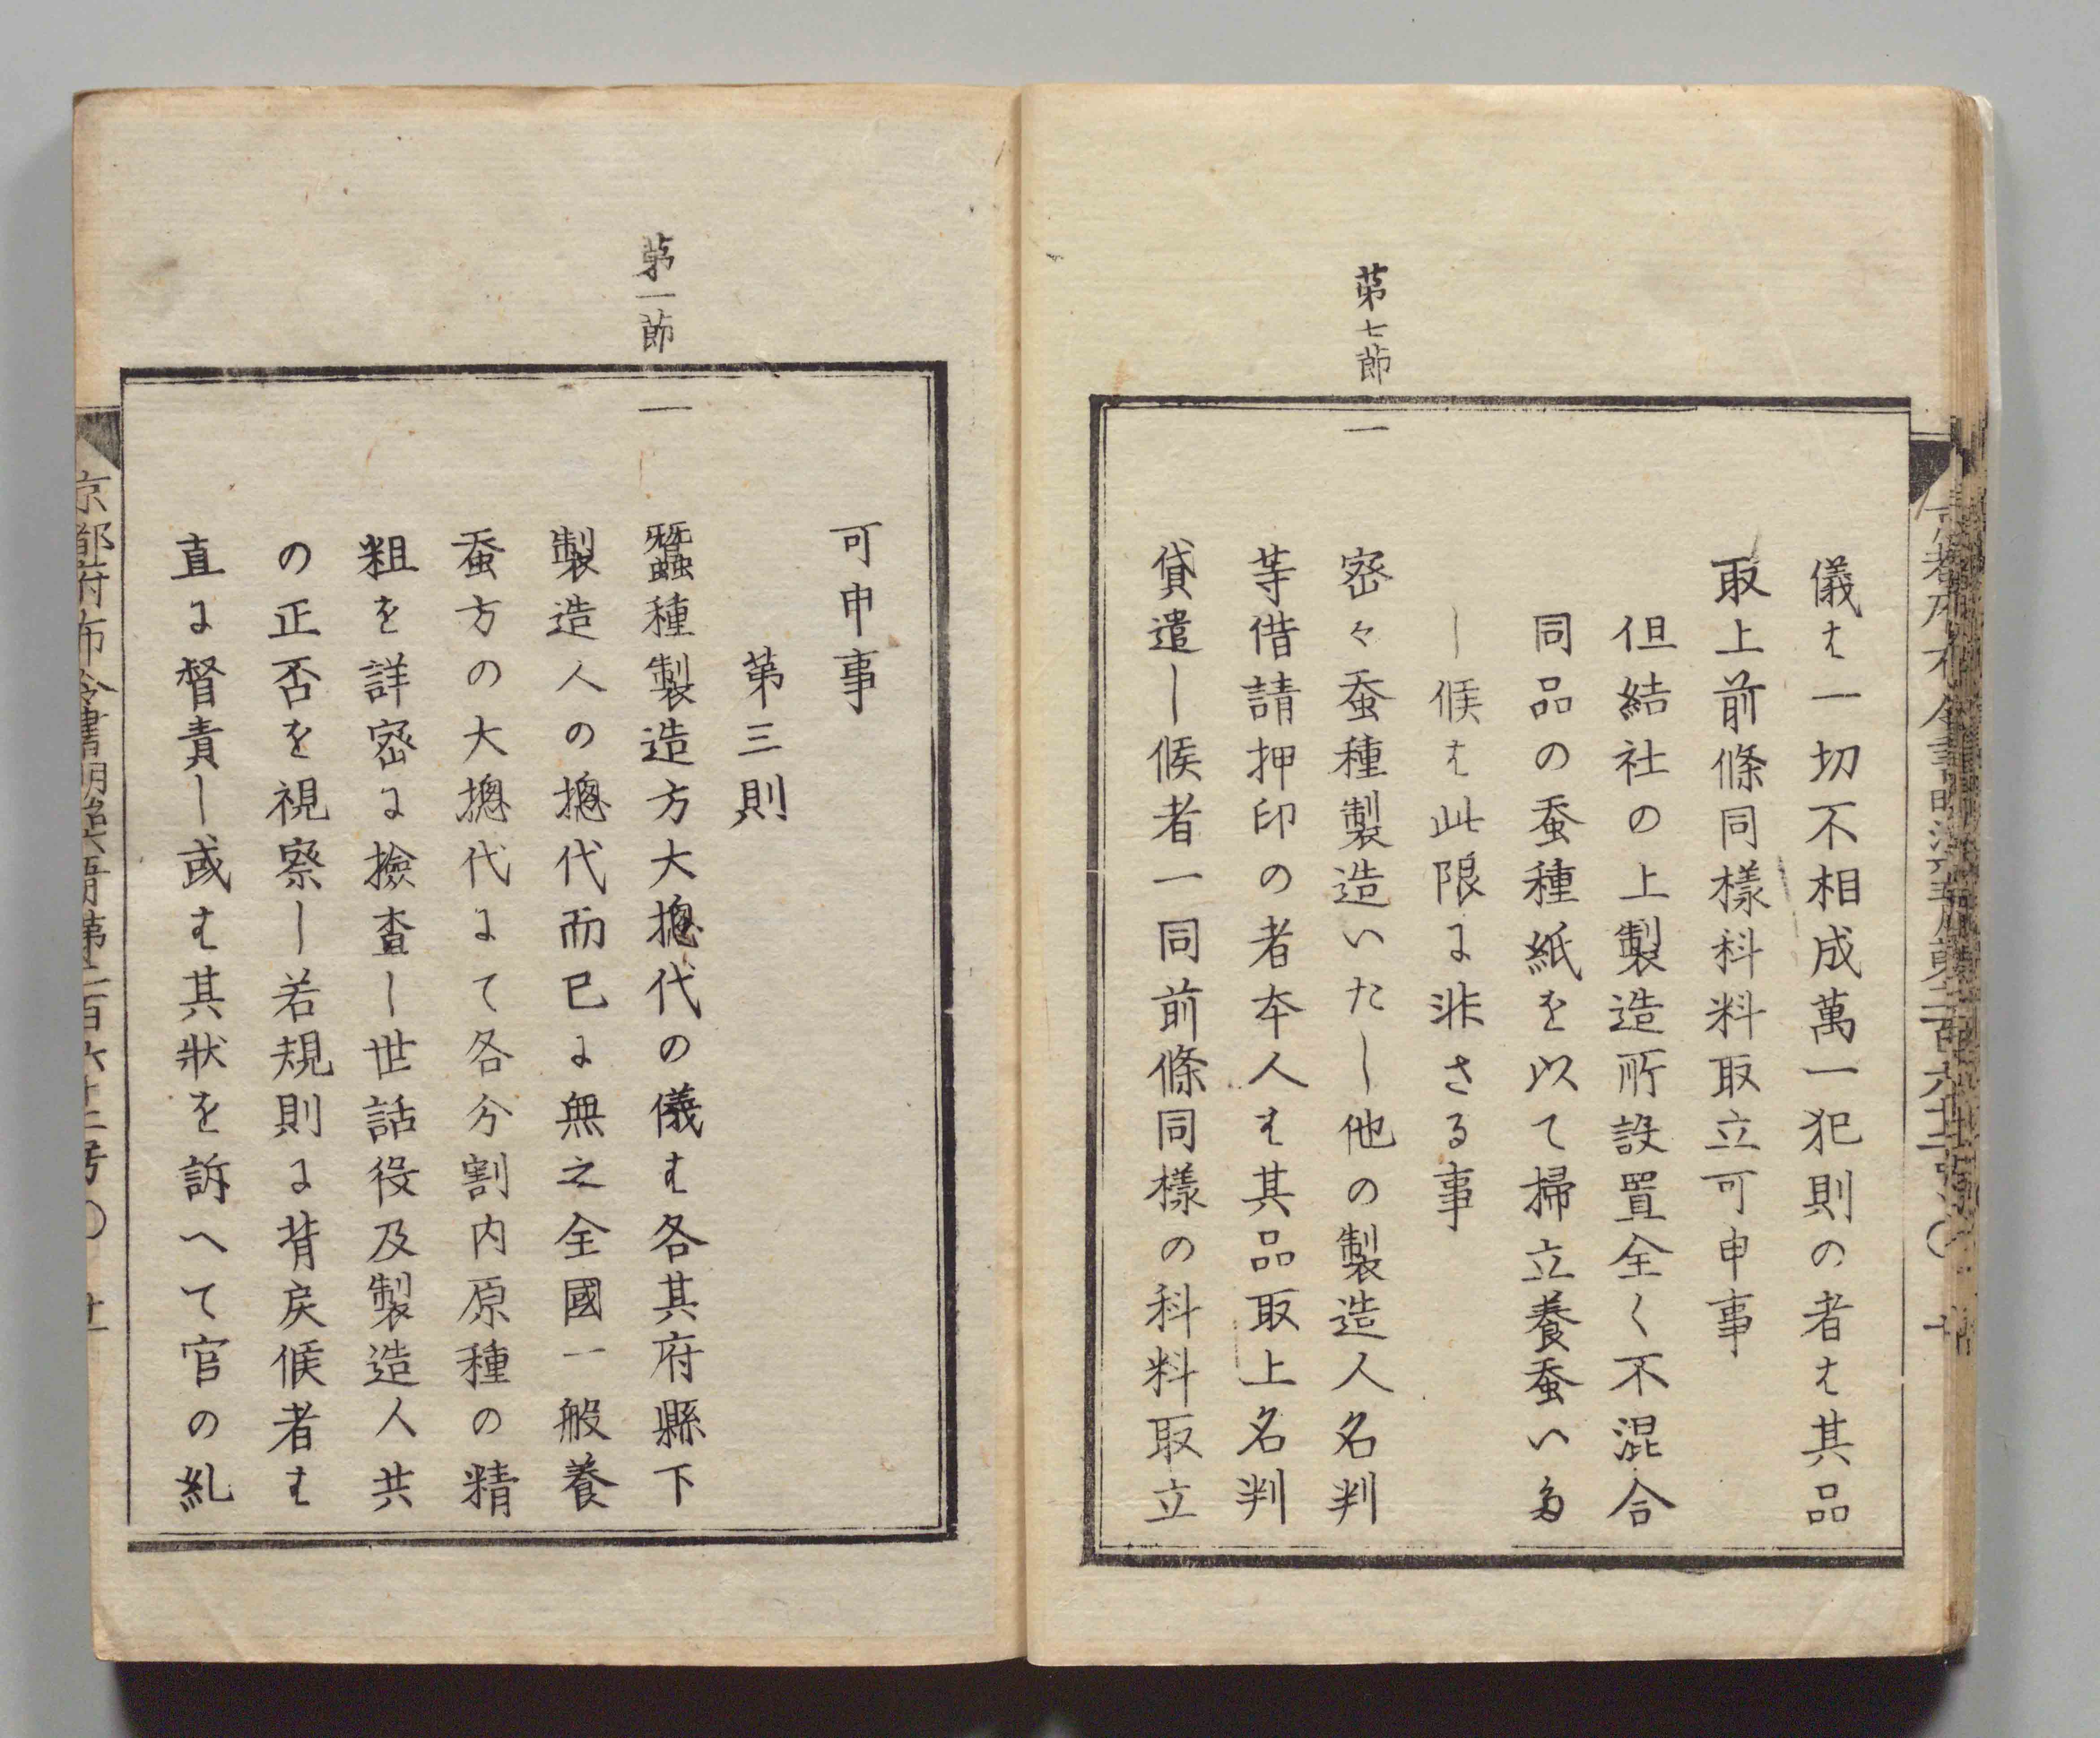 儀は一切不相成萬一犯則の者は其品
取上前條同樣科料取立可申事
但結社の上製造所設置全く不混合
同品の蚕種紙を以て掃立養蚕いた
し候は此限に非さる事
第七節
一
密々蚕種製造いたし他の製造人名判
等借請押印の者本人は其品取上名判
貸遣し候者一同前條同樣の科料取立
可申事
第三則
第一節
一
蠶種製造方大摠代の儀は各其府縣下
製造人の摠代而已に無之全國一般養
蚕方の大摠代にて各分割内原種の精
粗を詳密に撿査し世話役及製造人共
の正否を視察し若規則に背戻候者は
直に督責し或は其狀を訴へて官の糺
京都府布令書明治